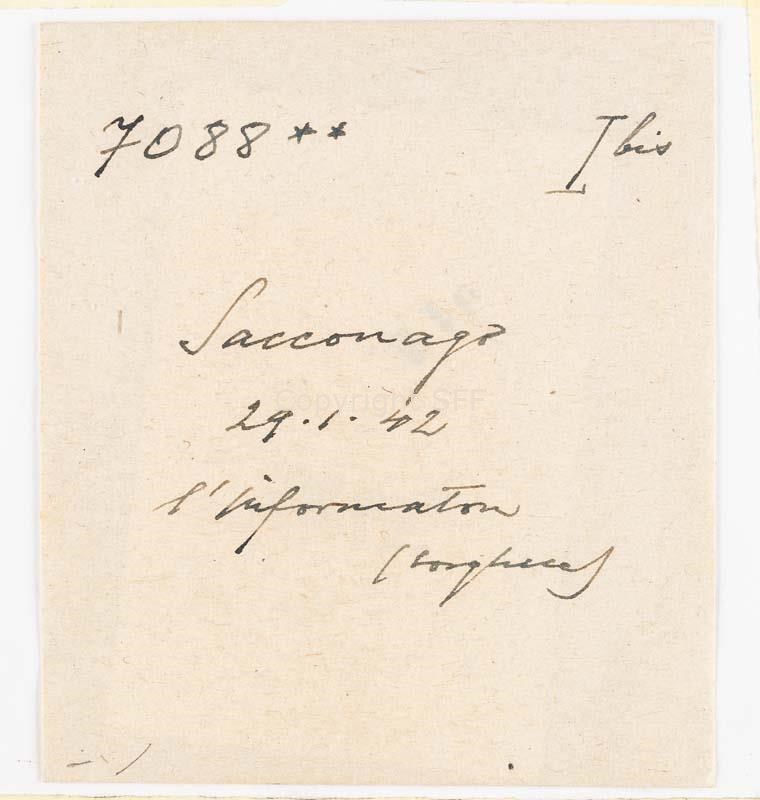 7088** I bis
Sacconago
29.1.42
l'informatore
Copyright SEF